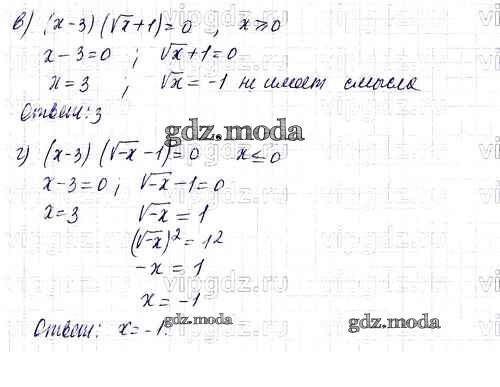 в) (x-3)(√x+1)=0 , x≥0
x-3=0 ; √x+1=0
x=3 ; √x=-1 не имеет смысла
Ответ: 3
gdz.moda
г) (x-3)(√-x-1)=0 x≤0
x-3=0; √-x-1=0
x=3 √-x=1
(√-x)²=1²
-x=1
x=-1
Ответ: x=-1.
gdz.moda
gdz.moda
vipgdz.ru